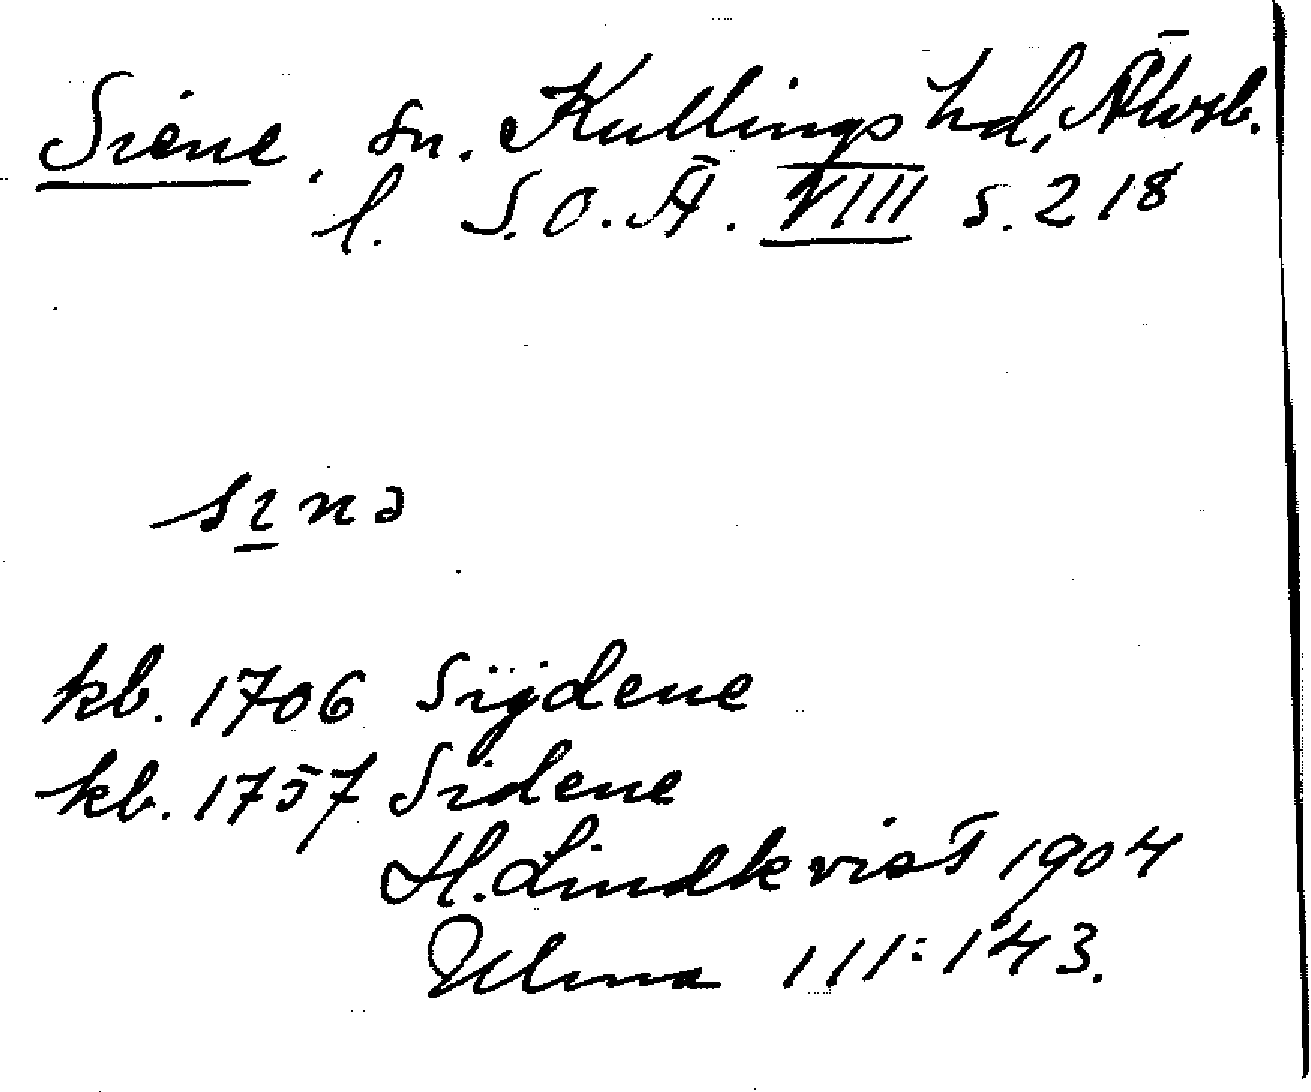 Siene, sn. Kullings hd, Älvsb.
l. S.O.Ä. VIII s. 218
sɩnə
kb. 1706 Sijdene
kb. 1757 Sidene
H. Lindkvist 1904
Ulma 111:143.